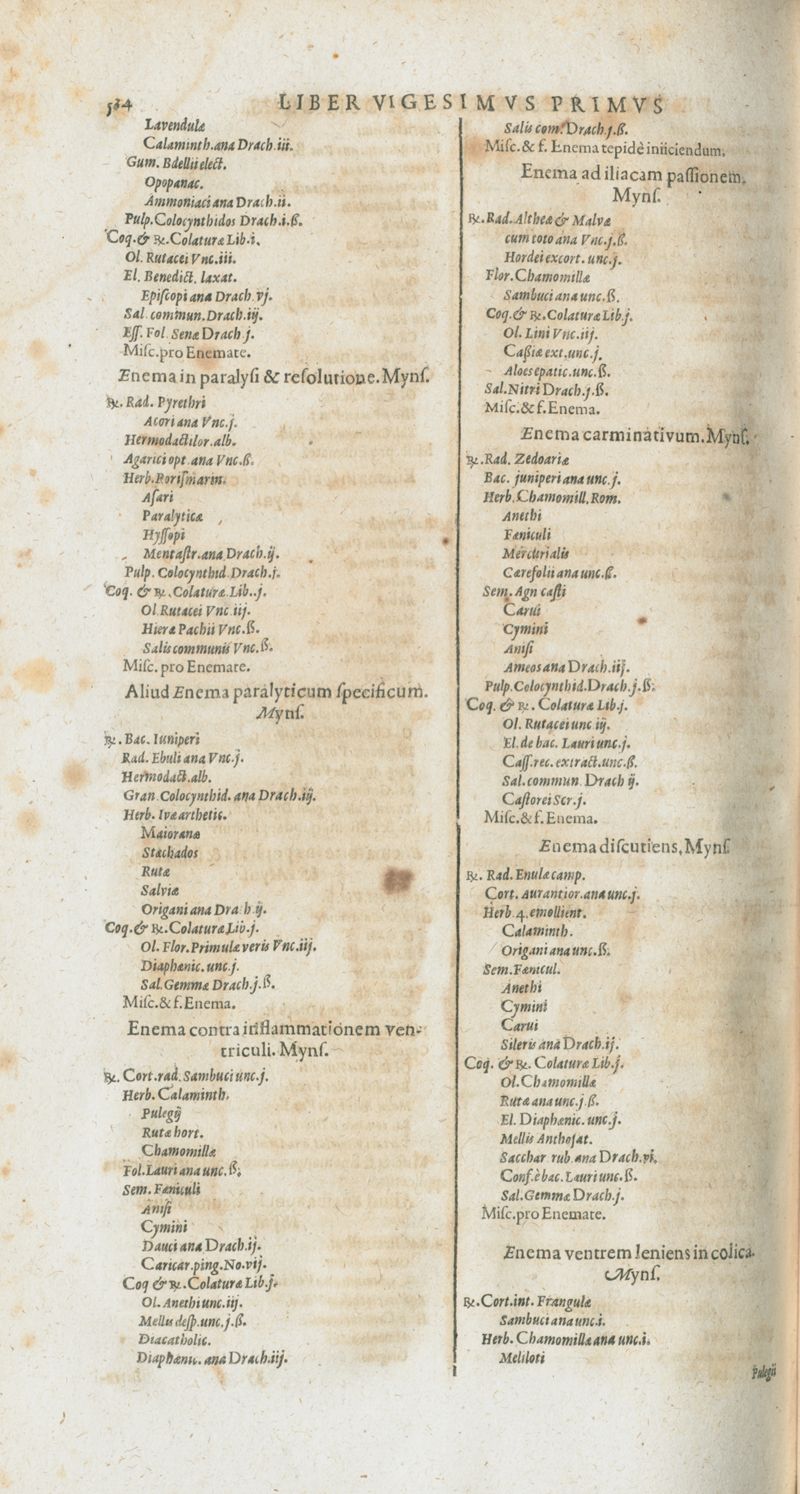 584 LIBER VIGESIMVS PRIMVS
Lavendulæ
Calaminth.ana Drach.iii.
Gum. Bdellii elect.
Opopanac.
Ammoniaci ana Drach.ii.
Pulp.Colocynthidos Drach.i.ß.
Coq.& ℞.Colaturæ Lib.i.
Ol. Rutacei Vnc.iii.
El. Benedict. laxat.
Epiſcopi ana Drach.vj.
Sal commun.Drach.iij.
Eſſ. Fol Senæ Drach j.
Miſc.pro Enemate.
Enema in paralyſi & reſolutione.Mynſ.
℞. Rad. Pyrethri
Acori ana Vnc.j.
Hermodactilor.alb.
Agarici opt.ana Vnc.ß.
Herb.Roriſmarin.
Aſari
Paralyticæ
Hyſſopi
Mentaſtr.ana Drach.ij.
Pulp. Colocynthid Drach.j.
Coq. & ℞.Colaturæ.Lib.j.
Ol Rutacei Vnc iij.
Hieræ Pachii Vnc.ß.
Salis communis Vnc.ß.
Miſc. pro Enemate.
Aliud Enema paralyticum ſpecificum.
Mynſ.
℞. Bac. Iuniperi
Rad. Ebuli ana Vnc.j.
Hermodact.alb.
Gran Colocynthid. ana Drach.iij.
Herb. Ivæ arthetic.
Maioranæ
Stæchados
Rutæ
Salviæ
Origani ana Drach ij.
Coq.& ℞.Colaturæ Lib.j.
Ol. Flor.Primulæ veris Vnc.iij.
Diaphænic.unc.j.
Sal.Gemmæ Drach.j.ß.
Miſc.& f.Enema.
Enema contra inflammationem ven-
triculi. Mynſ.
℞. Cort.rad.Sambuci unc.j.
Herb. Calaminth.
Pulegij
Rutæ hort.
Chamomillæ
Fol.Lauri ana unc.ß.
Sem. Fœniculi
Aniſi
Cymini
Dauci ana Drach.ij.
Caricar.ping.No.vij.
Coq & ℞.Colaturæ Lib.j.
Ol. Anethi unc.iij.
Mellis deſp.unc.j.ß.
Diacatholic.
Diaphænic. ana Drach.iij.
Salis com.Drach.j.ß.
Miſc.& f. Enema tepidè iniiciendum.
Enema ad iliacam paſſionem.
Mynſ.
℞.Rad.Altheæ & Malvæ
cum toto ana Vnc.j.ß.
Hordei excort. unc.j.
Flor.Chamomillæ
Sambuci ana unc.ß.
Coq.& ℞.Colaturæ Lib.j.
Ol. Lini Vnc.iij.
Caßiæ ext.unc.j.
Aloes epatic.unc.ß.
Sal.Nitri Drach.j.ß.
Miſc.& f.Enema.
Enema carminativum.Mynſ.
℞.Rad. Zedoariæ
Bac. juniperi ana unc.j.
Herb.Chamomill.Rom.
Anethi
Fæniculi
Mercurialis
Cærefolii ana unc.ß.
Sem. Agn caſti
Carui
Cymini
Aniſi
Ameos ana Drach.iij.
Pulp.Colocynthid.Drach.j.ß.
Coq. & ℞. Colaturæ Lib.j.
Ol. Rutacei unc iij.
El.de bac. Lauri unc.j.
Caſſ.rec.extract.unc.ß.
Sal.commun Drach ij.
Caſtorei Scr.j.
Miſc.& f.Enema.
Enema diſcutiens.Mynſ
℞. Rad. Enulæ camp.
Cort. Aurantior.ana unc.j.
Herb.4.emollient.
Calaminth.
Origani ana unc.ß.
Sem.Fænicul.
Anethi
Cymini
Carui
Sileris ana Drach.ij.
Coq. & ℞. Colaturæ Lib.j.
Ol.Chamomillæ
Rutæ ana unc.j.ß.
El. Diaphænic. unc.j.
Mellis Anthoſat.
Sacchar rub.ana Drach.vi.
Conf.è bac.Lauri unc.ß.
Sal.Gemmæ Drach.j.
Miſc.pro Enemate.
Enema ventrem leniens in colica.
Mynſ.
℞.Cort.int. Frangulæ
Sambuci ana unc.i.
Herb. Chamomillæ ana unc.i.
Meliloti
Pulegii